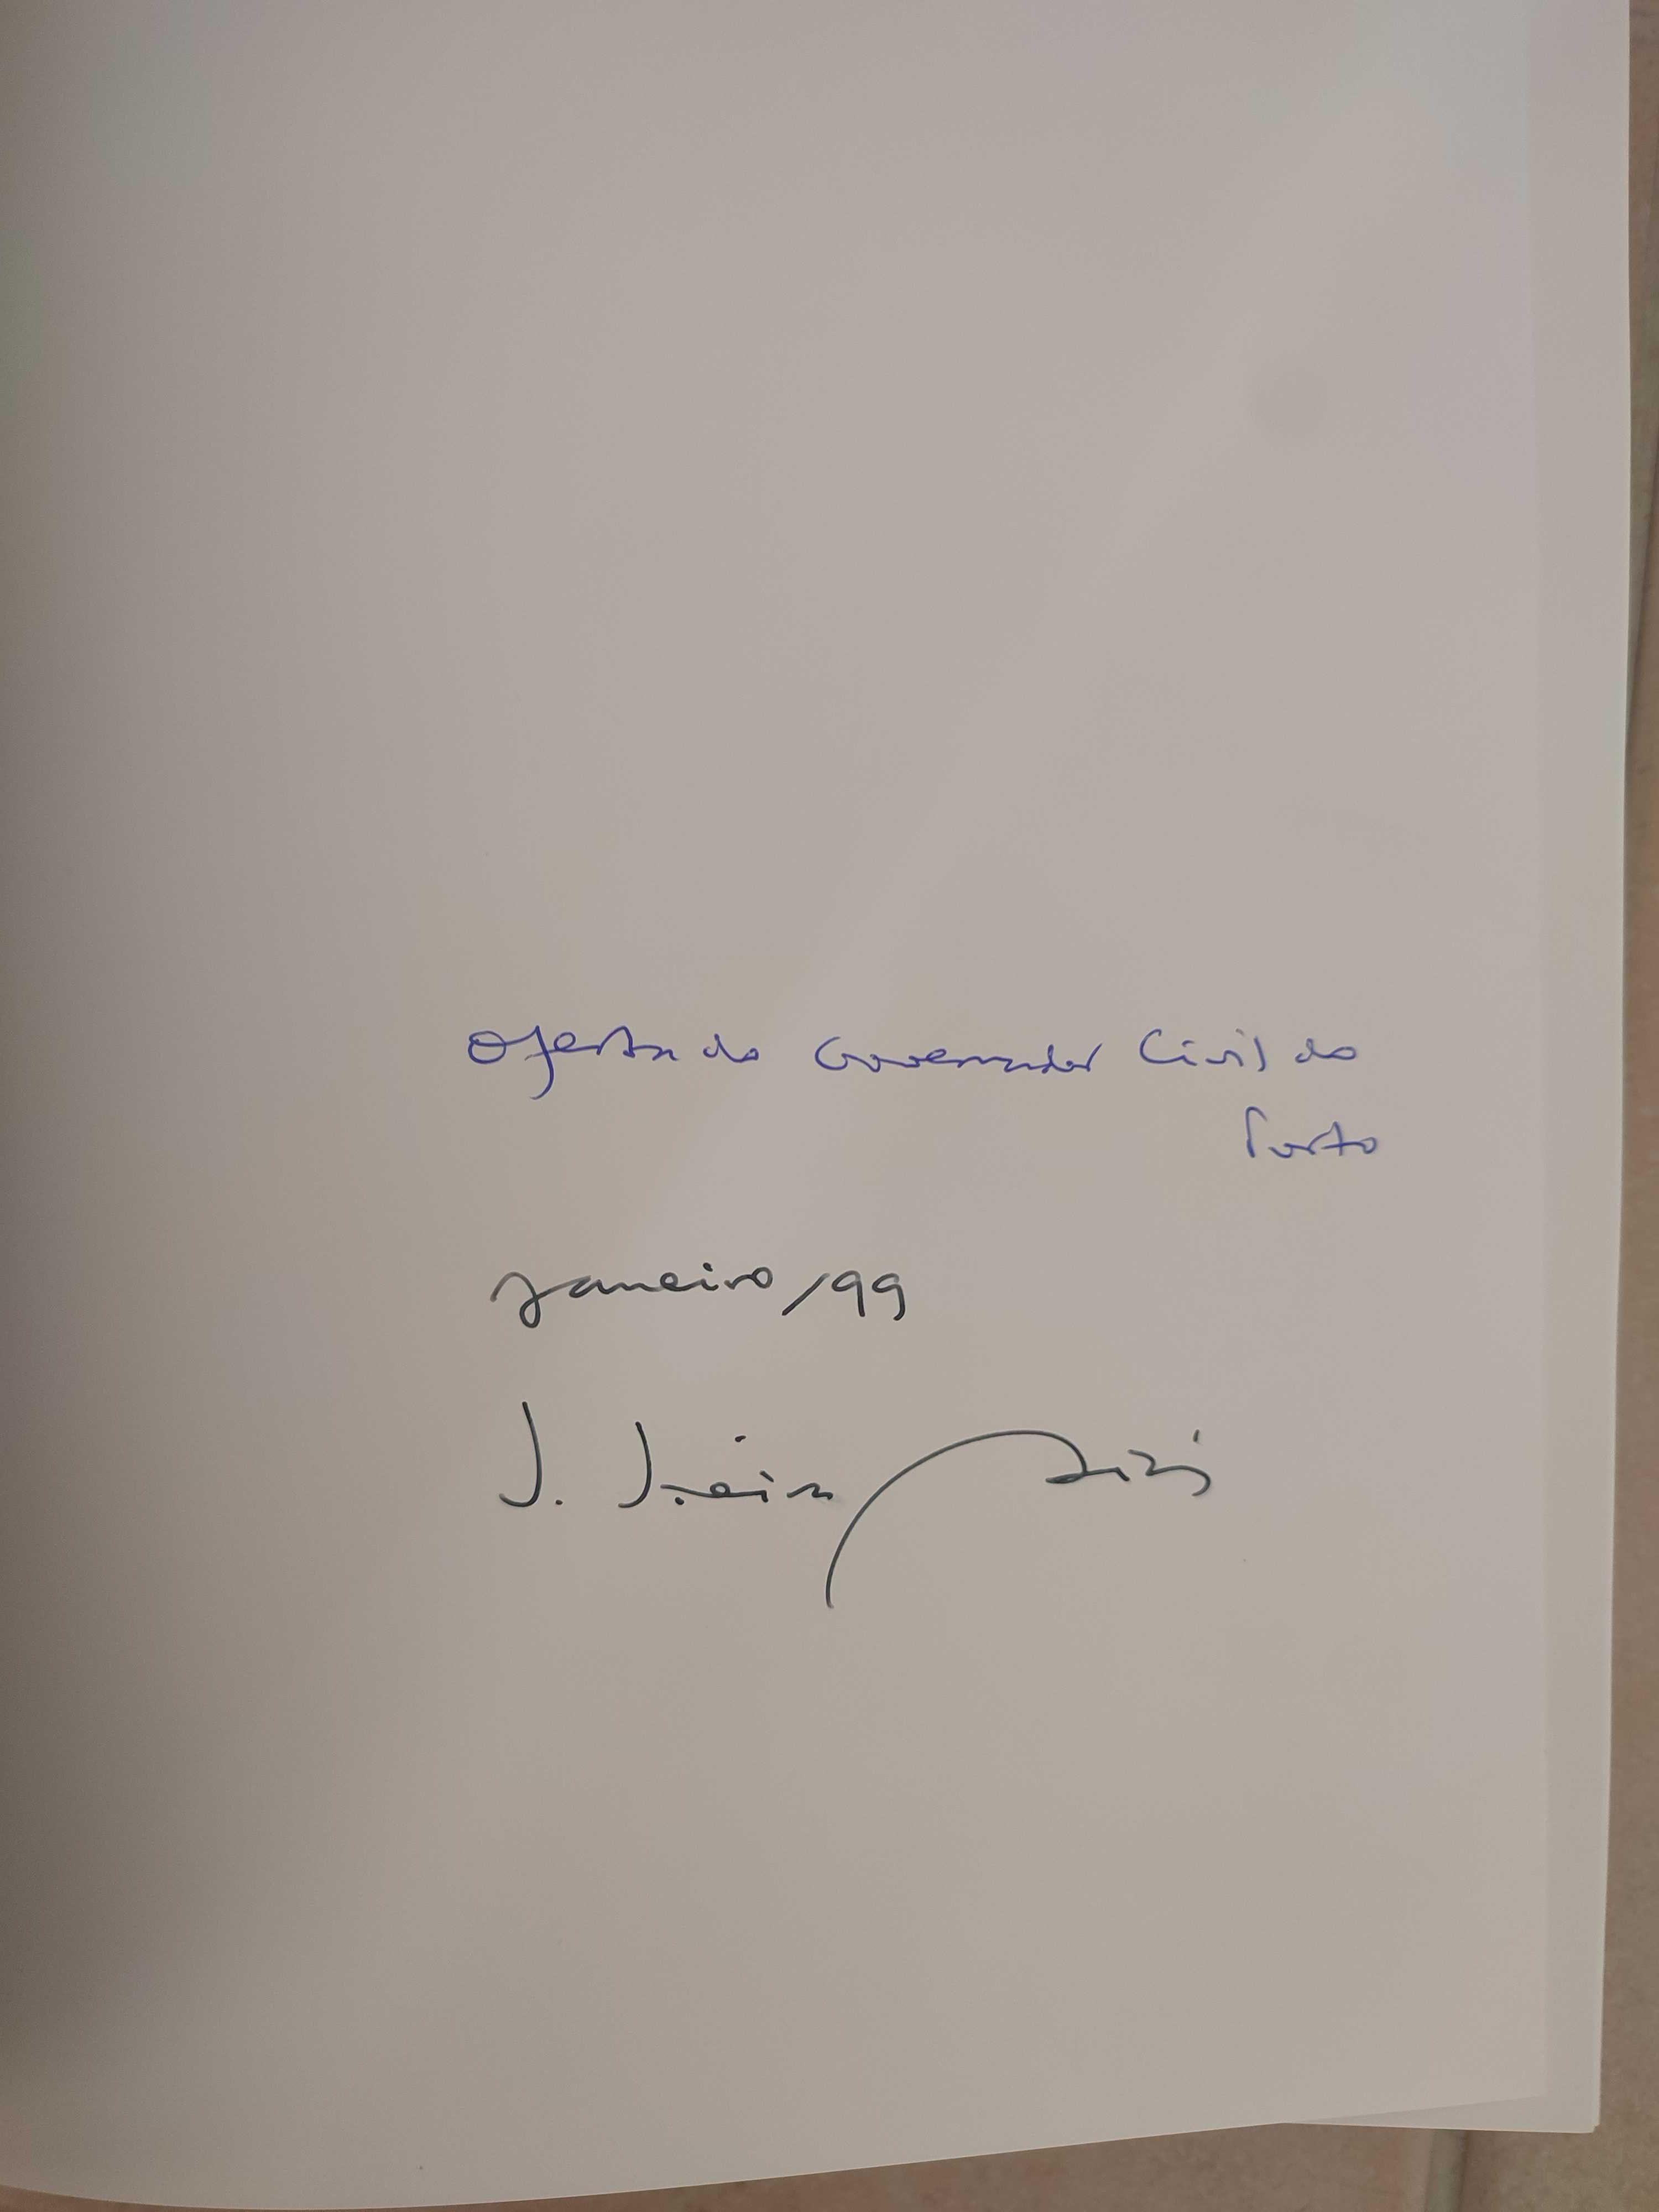 Oferta do Governador Civil do
Porto
Janeiro/99
J.